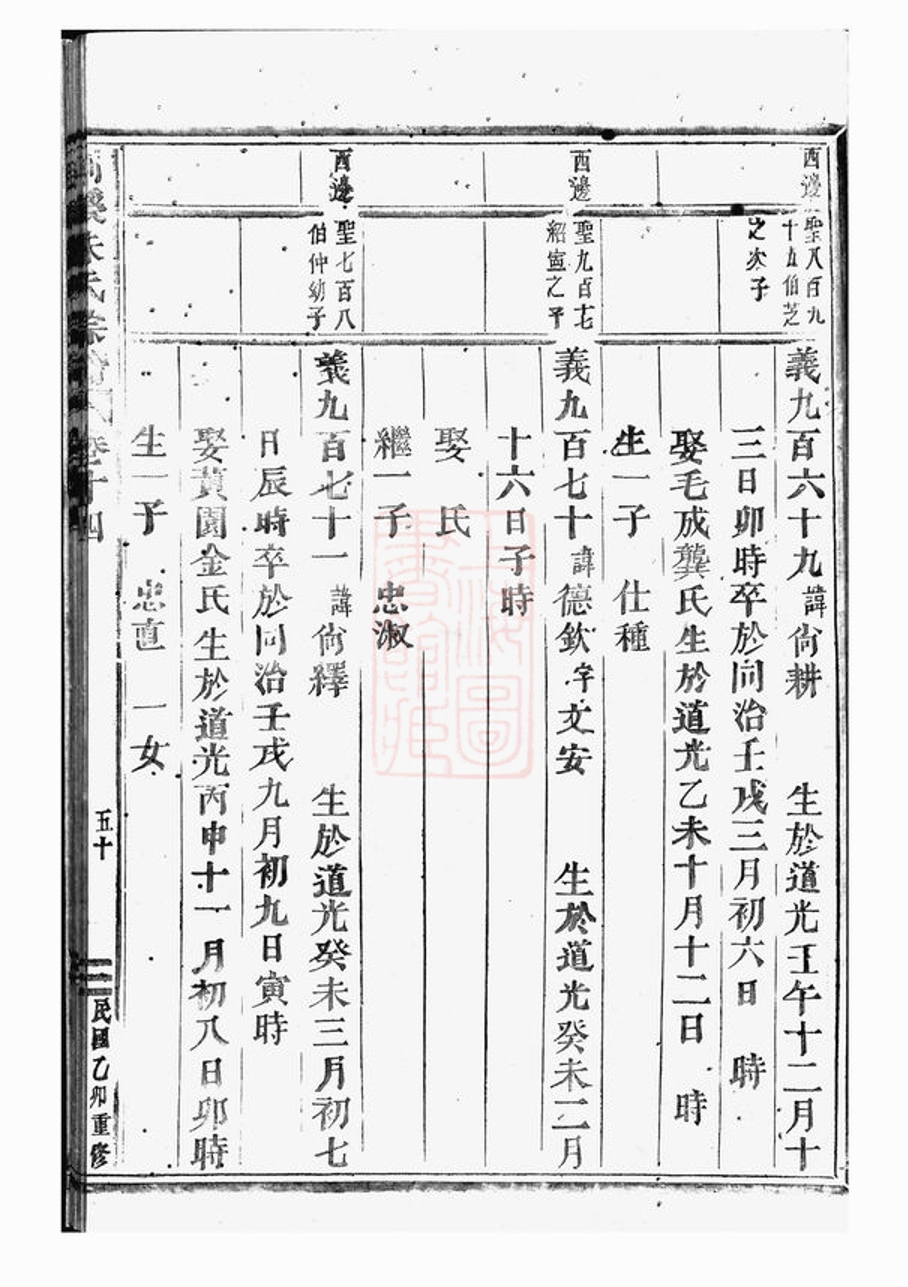 西邊
聖八百九
十五伯芝
之次子
義九百六十九諱尙耕 生於道光壬午十二月十
三日卯時卒於同治壬戌三月初六日 時
娶毛成龔氏生於道光乙未十月十二日 時
生一子 仕種
西邊
聖九百七
紹寅之子
義九百七十諱德欽字文安 生於道光癸未二月
十六日子時
娶 氏
繼一子 忠淑
西邊
聖七百八
伯仲幼子
義九百七十一諱尙繹 生於道光癸未三月初七
日辰時卒於同治壬戌九月初九日寅時
娶黃園金氏生於道光丙申十一月初八日卯時
生一子 忠直 一女
朱氏宗 卷十四
五十
民國乙卯重修
上海圖
書館藏